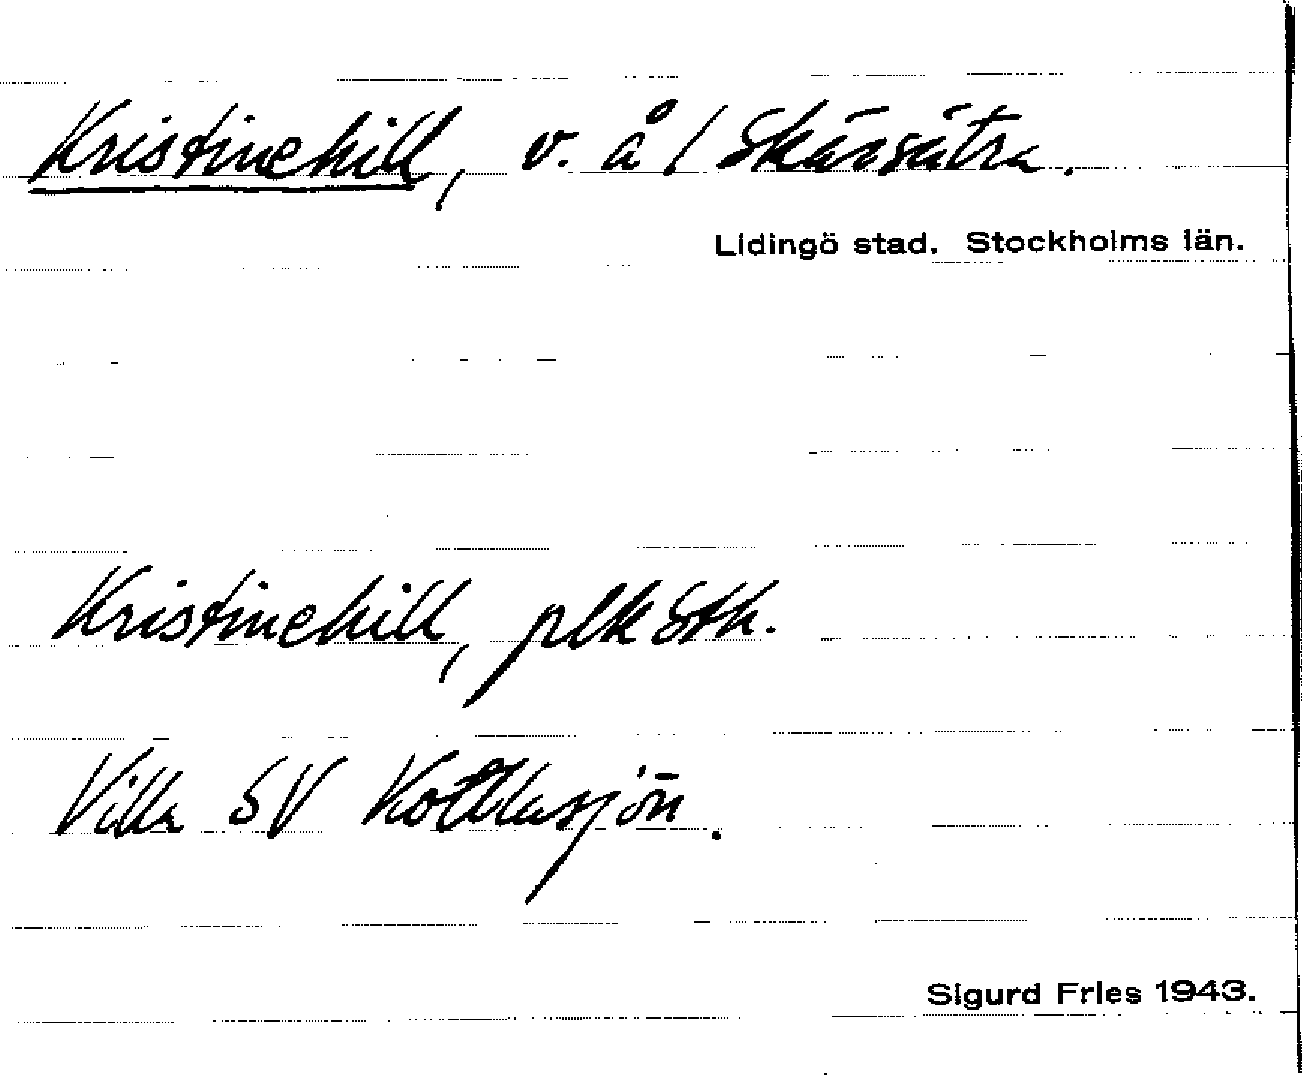 Kristinehill, v. å / Skärsätra.
Lidingö stad. Stockholms län.
Kristinehill, plk Sth.
Villa SV Kottlasjön.
Sigurd Fries 1943.